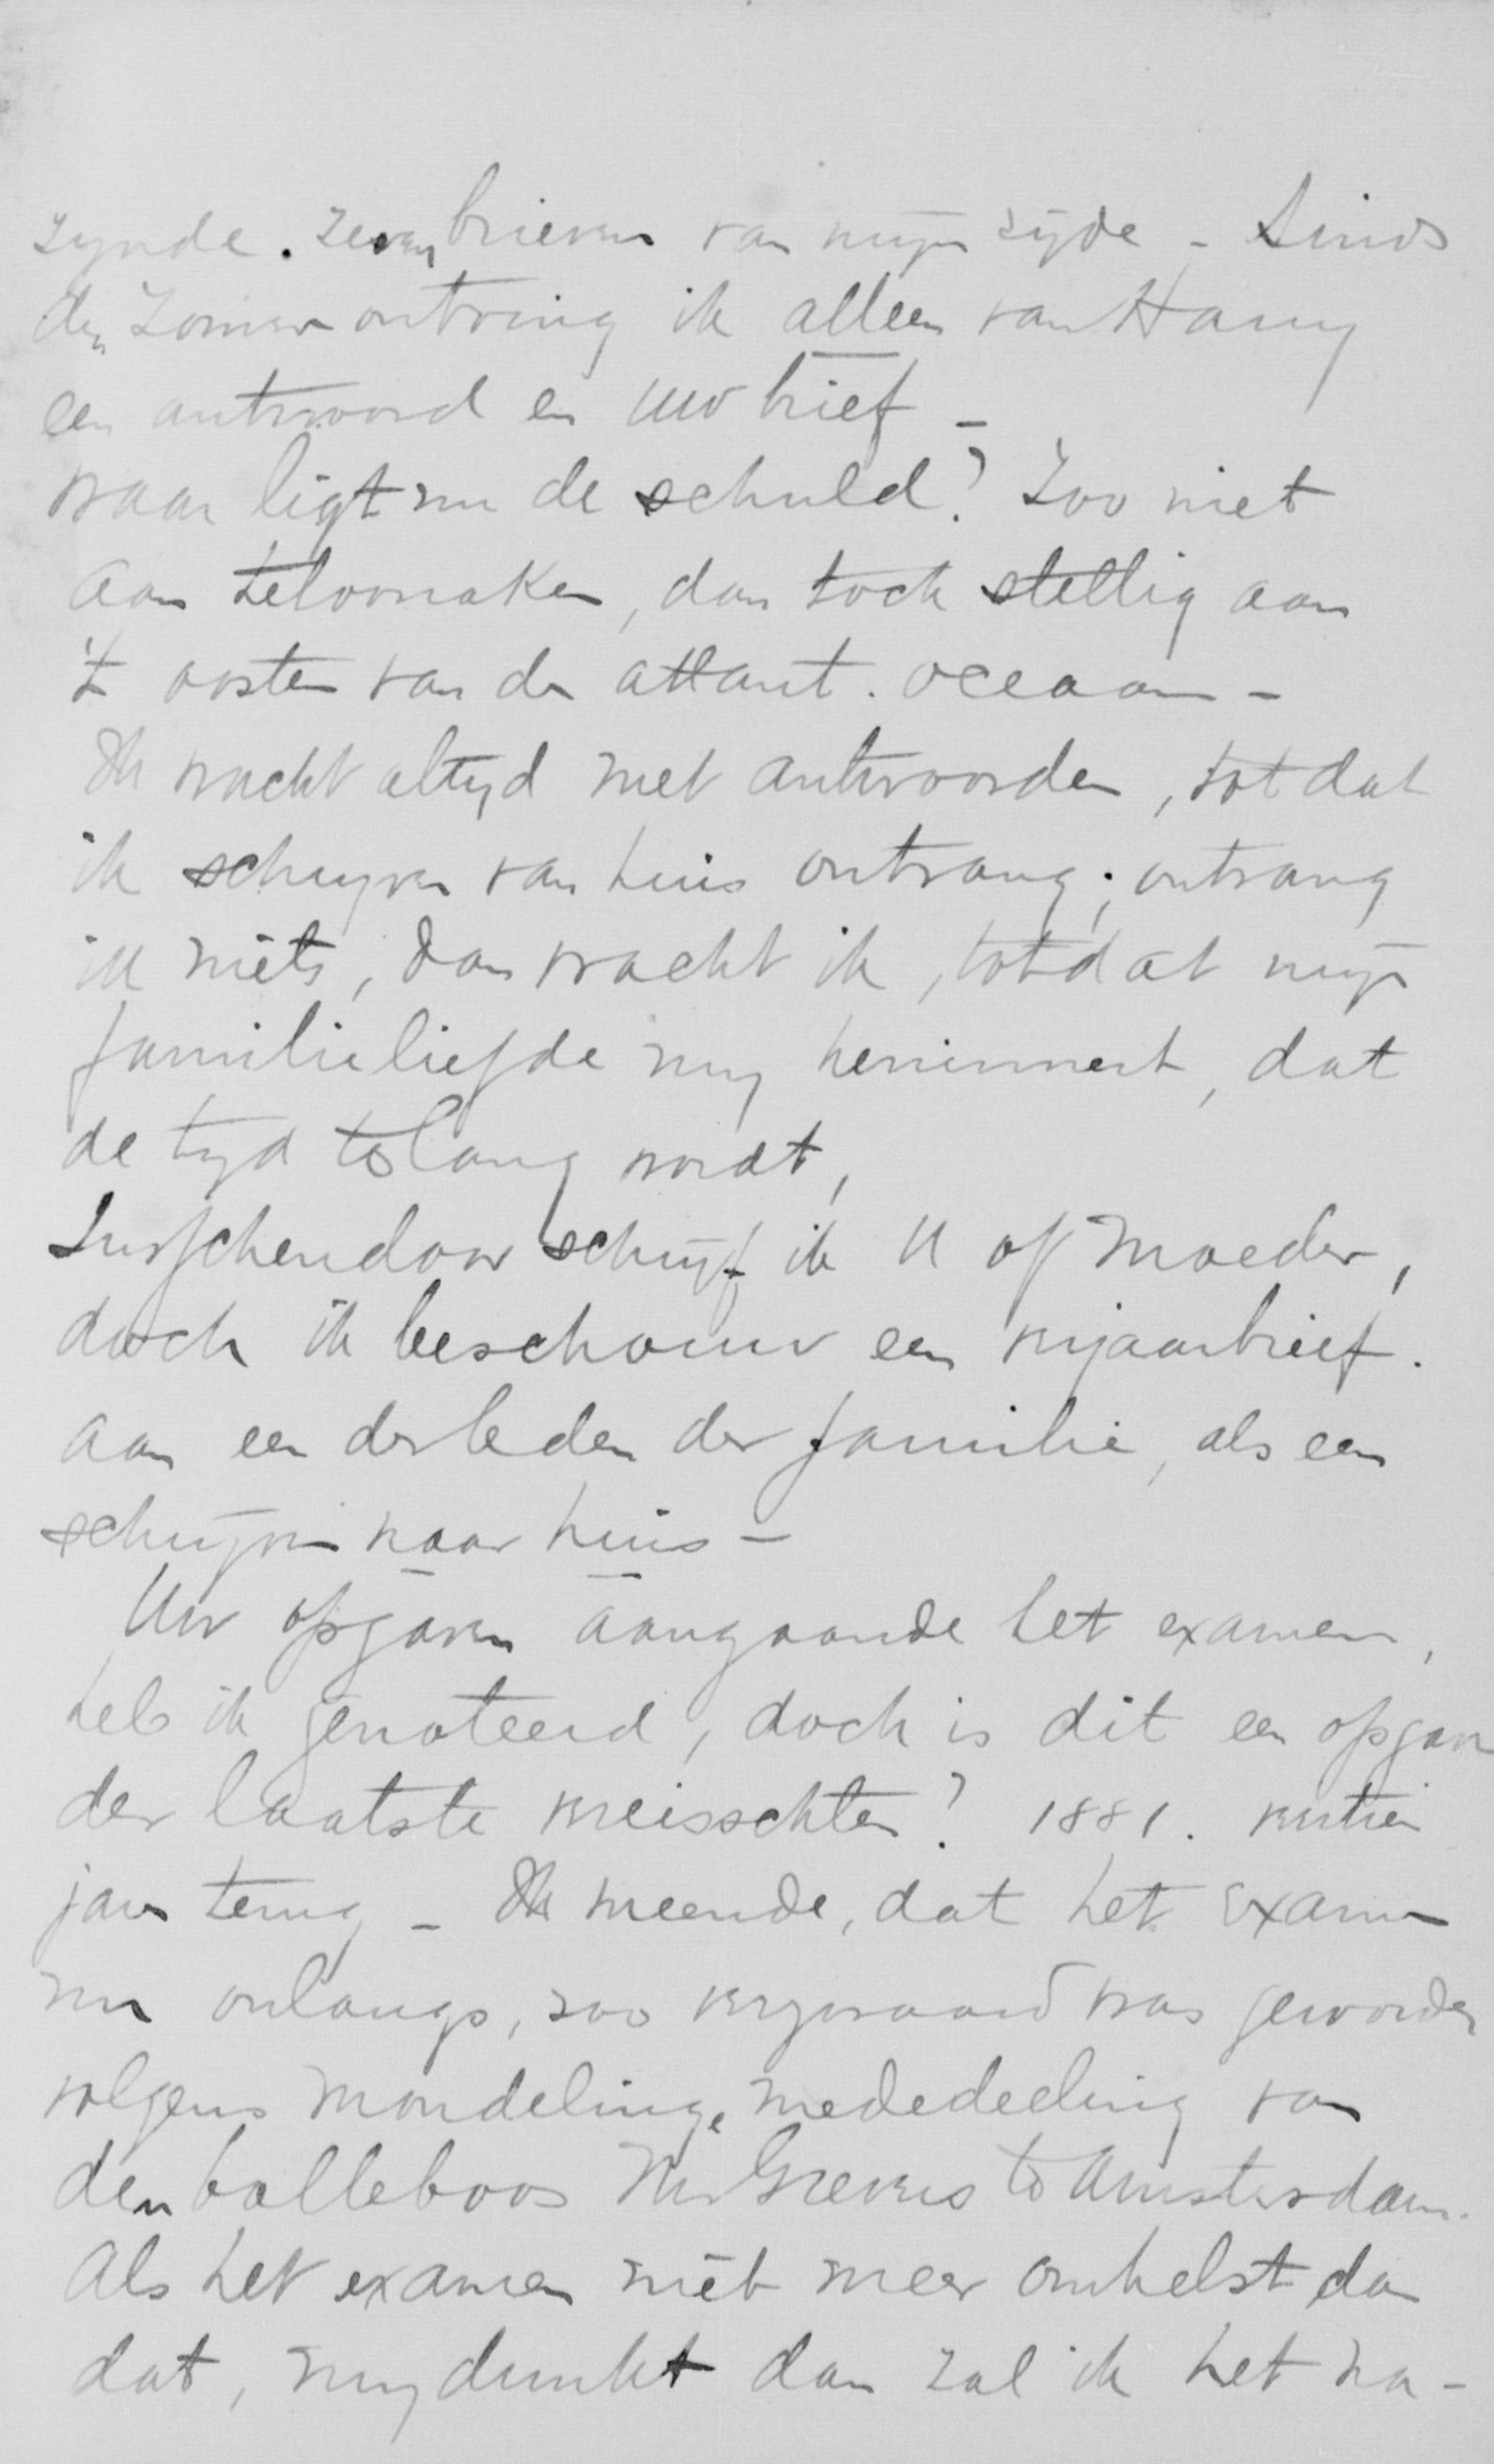 zynde. zeven brieven van mijn zijde - Sinds
den Zomer ontving ik alleen van Harry
een antwoord en uw brief -
waar ligt nu de schuld? Zoo niet
aan zelvomaken, dan toch stellig aan
't oosten van de atlant. oceaan -
Ik wacht altyd met antwoorden, totdat
ik schryven van huis ontvang; ontvang
ik niets, dan wacht ik, totdat mijn
familieliefde my herinnert, dat
de tyd te lang wordt,
Tusschendoor schrijf ik U of Moeder,
doch ik beschouw een verjaarbrief.
aan een der leden der familie, als een
schrijven naar huis -
Uw opgaven aangaande het examen,
heb ik genoteerd, doch is dit een opgave
der laatste vereischten? 1881. veertien
jaar terug - Ik meende, dat het examen
nu onlangs, zoo verzwaard was geworden
volgens mondelinge mededeeling van
den bolleboos Mr Greven te Amsterdam.
Als het examen niet meer omhelst dan
dat, my dunkt dan zal ik het na-